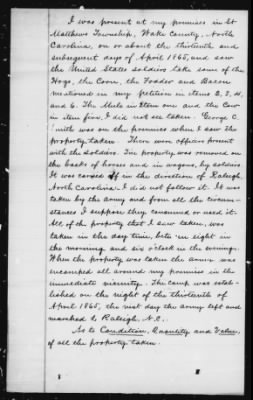 I was present at my premises in St
Matthews Township, Wake County, North
Carolina, on or about the thirteenth and
subsequent days of April 1865, and saw
the United States soldiers take some of the
Hogs, the Corn, the Fodder and Bacon
mentioned in my petition in items 2, 3, 4,
and 6. The Mule in Item one and the Cow
in item five, I did not see taken. George C.
Smith was on the premises when I saw the
property taken. There were officers present
with the soldiers. The property was removed on
the backs of horses and in wagons, by soldiers.
It was carried off in the direction of Raleigh,
North Carolina. I did not follow it. It was
taken by the army and from all the circum-
stances I suppose they consumed or used it.
All of the property that I saw taken, was
taken in the day time, between eight in
the morning and six o'clock in the evening.
When the property was taken the army was
encamped all around my premises in the
immediate vicinity. The camp was estab-
lished on the night of the thirteenth of
April 1865, the next day the army left and
marched to Raleigh, N.C.
As to Condition, Quantity and Value,
of all the property taken.